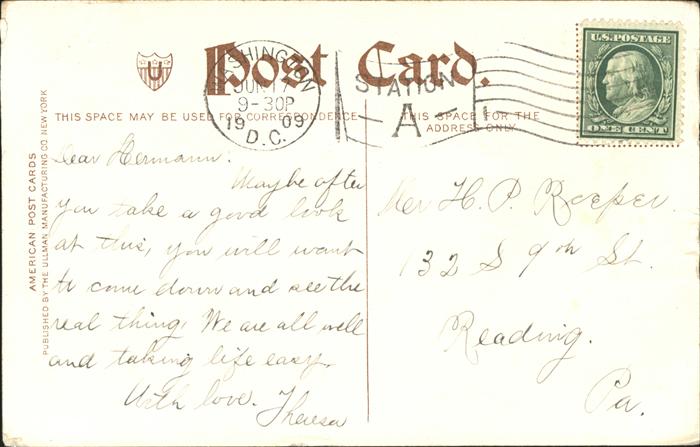 Post Card.
WASHINGTON
JUN 17
9-30P
1909
D.C.
STATION
A
U.S. POSTAGE
ONE CENT
U
THIS SPACE MAY BE USED FOR CORRESPONDENCE
THIS SPACE FOR THE
ADDRESS ONLY
AMERICAN POST CARDS
PUBLISHED BY THE ULLMAN MANUFACTURING CO. NEW YORK
Dear Hermann:
Maybe after
you take a good look
at this, you will want
to come down and see the
real thing. We are all well
and taking life easy.
With love. Theresa
H. P.
132 S 9th St.
Reading.
Pa.